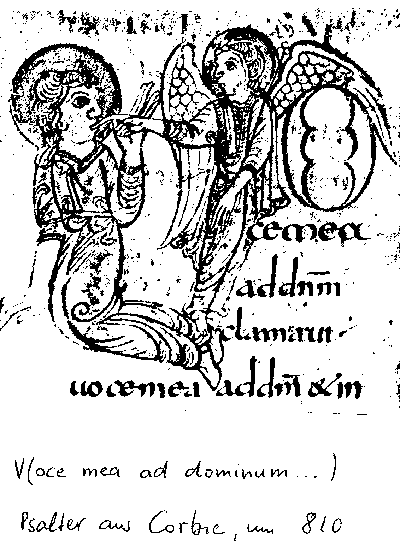 O
cemea
addn̄m
clamaui
uocemea addm̄ &in
V(oce mea ad dominum...)
Psalter aus Corbie, um 810